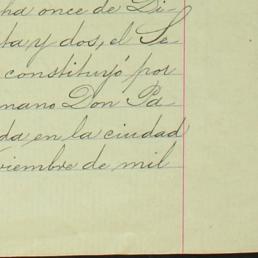 ha once de Di-
ta y dos, el Se
constituyó por
mano Don Pa
da, en la ciudad
viembre de mil